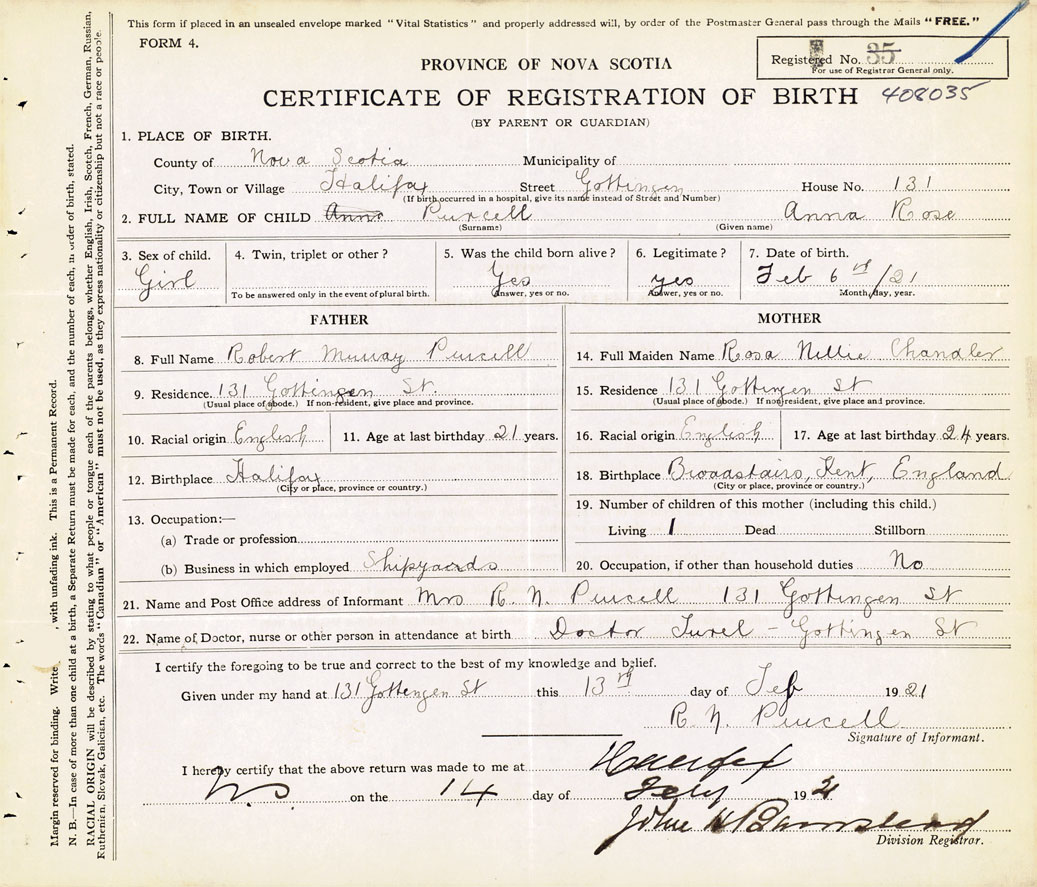 This form if placed in an unsealed envelope marked "Vital Statistics" and properly addressed will, by order of the Postmaster General pass through the Mails "FREE."
FORM 4.
Registered No. 35
For use of Registrar General only.
PROVINCE OF NOVA SCOTIA
CERTIFICATE OF REGISTRATION OF BIRTH 408035
(BY PARENT OR GUARDIAN)
1. PLACE OF BIRTH.
County of Nova Scotia Municipality of
City, Town or Village Halifax Street Gottingen House No. 131
(If birth occurred in a hospital, give its name instead of Street and Number)
2. FULL NAME OF CHILD Anna Purcell Anna Rose
(Surname) (Given name)
3. Sex of child. 4. Twin, triplet or other? 5. Was the child born alive? 6. Legitimate? 7. Date of birth.
Girl Yes yes Feb 6th/21
To be answered only in the event of plural birth. Answer, yes or no. Answer, yes or no. Month, day, year.
FATHER
8. Full Name Robert Murray Purcell
9. Residence. 131 Gottingen St.
(Usual place of abode.) If non-resident, give place and province.
10. Racial origin English 11. Age at last birthday 21 years.
12. Birthplace Halifax
(City or place, province or country.)
13. Occupation:—
(a) Trade or profession
(b) Business in which employed Shipyards
MOTHER
14. Full Maiden Name Rosa Nellie Chandler
15. Residence 131 Gottingen St
(Usual place of abode.) If non-resident, give place and province.
16. Racial origin English 17. Age at last birthday 24 years.
18. Birthplace Broadstairs, Kent, England
(City or place, province or country.)
19. Number of children of this mother (including this child.)
Living 1 Dead Stillborn
20. Occupation, if other than household duties No
21. Name and Post Office address of Informant Mrs R. N. Purcell 131 Gottingen St
22. Name of Doctor, nurse or other person in attendance at birth Doctor - Gottingen St
I certify the foregoing to be true and correct to the best of my knowledge and belief.
Given under my hand at 131 Gottengen St this 13rd day of Feb 1921
R. N. Purcell
Signature of Informant.
I hereby certify that the above return was made to me at Halifax
N.S. on the 14 day of Feby 192
John H Barnstead
Division Registrar.
Margin reserved for binding. Write, with unfading ink. This is a Permanent Record.
N. B.—In case of more than one child at a birth, a Separate Return must be made for each, and the number of each, in order of birth, stated.
RACIAL ORIGIN will be described by stating to what people or tongue each of the parents belongs, whether English, Irish, Scotch, French, German, Russian,
Ruthenien, Slovak, Galician, etc. The words "Canadian" or "American" must not be used, as they express nationality or citizenship but not a race or people.